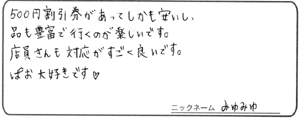 500円割引券があってしかも安いし、
品も豊富で行くのが楽しいです。
店員さんも対応がすごく良いです。
ぱお大好きです♡
ニックネーム みゆみゆ